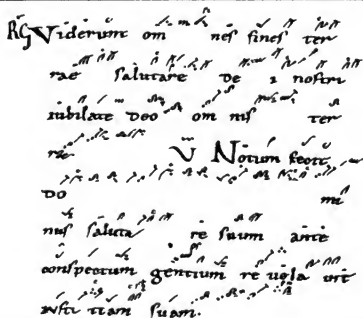 RG Viderunt om nes fines ter
rae salutare de i nostri
iubilate deo om nis ter
rae V Notum fecit
do mi
nus saluta re suum ante
conspectum gentium re uela uit
iusti tiam suam.